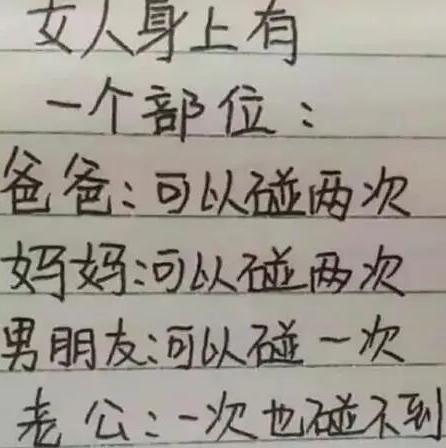 女人身上有
一个部位：
爸爸：可以碰两次
妈妈：可以碰两次
男朋友：可以碰一次
老公：一次也碰不到